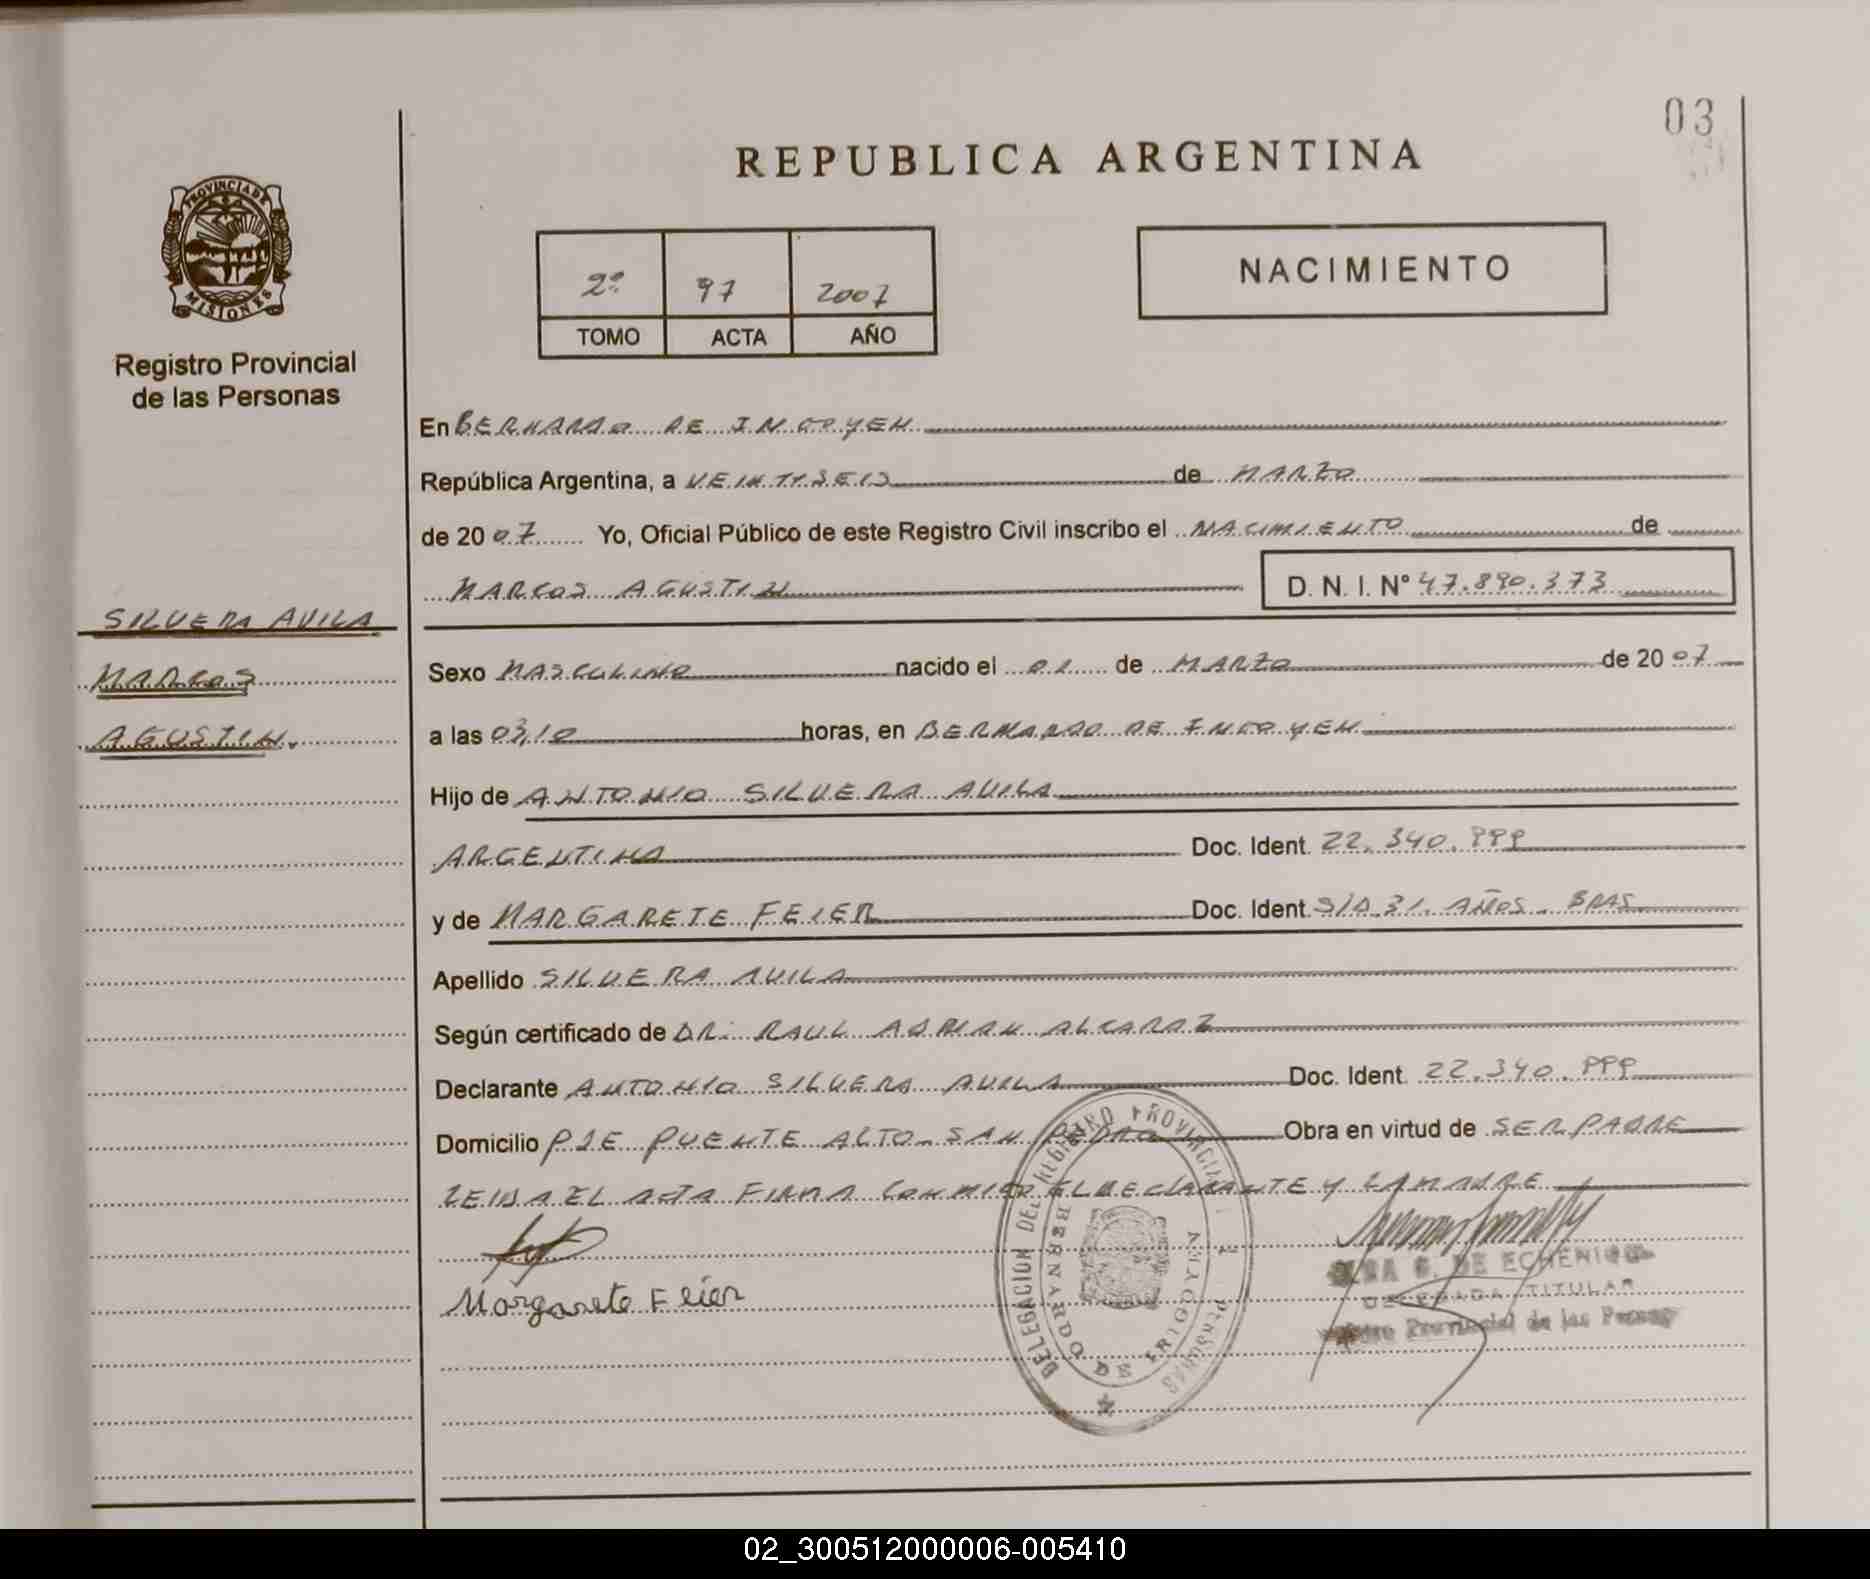 03
REPUBLICA ARGENTINA
PROVINCIA DE
MISIONES
Registro Provincial
de las Personas
2º 97 2007
TOMO ACTA AÑO
NACIMIENTO
En BERNARDO DE IRIGOYEN
República Argentina, a VEINTISEIS de MARZO
de 2007 Yo, Oficial Público de este Registro Civil inscribo el NACIMIENTO de
MARCOS AGUSTIN D. N. I. Nº 47.890.373
SILVERA AVILA
MARCOS
AGUSTIN.
Sexo MASCULINO nacido el 01 de MARZO de 2007
a las 03,10 horas, en BERNARDO DE IRIGOYEN
Hijo de ANTONIO SILVERA AVILA
ARGENTINA Doc. Ident. 22.340.999
y de MARGARETE FEIER Doc. Ident. S/D.31. AÑOS. BRAS.
Apellido SILVERA AVILA
Según certificado de DR: RAUL ADRIAN ALCARAZ
Declarante ANTONIO SILVERA AVILA Doc. Ident. 22.340.999
Domicilio PJE PUENTE ALTO - SAN PEDRO Obra en virtud de SER PADRE
LEIDA EL ACTA FIRMA CONMIGO EL DECLARANTE Y LA MADRE
Margarete Feier
DELEGACION DEL REGISTRO PROVINCIAL DE LAS PERSONAS
BERNARDO DE IRIGOYEN
G. DE ECHENIQUE
DELEGADA TITULAR
Registro Provincial de las Personas
02_300512000006-005410